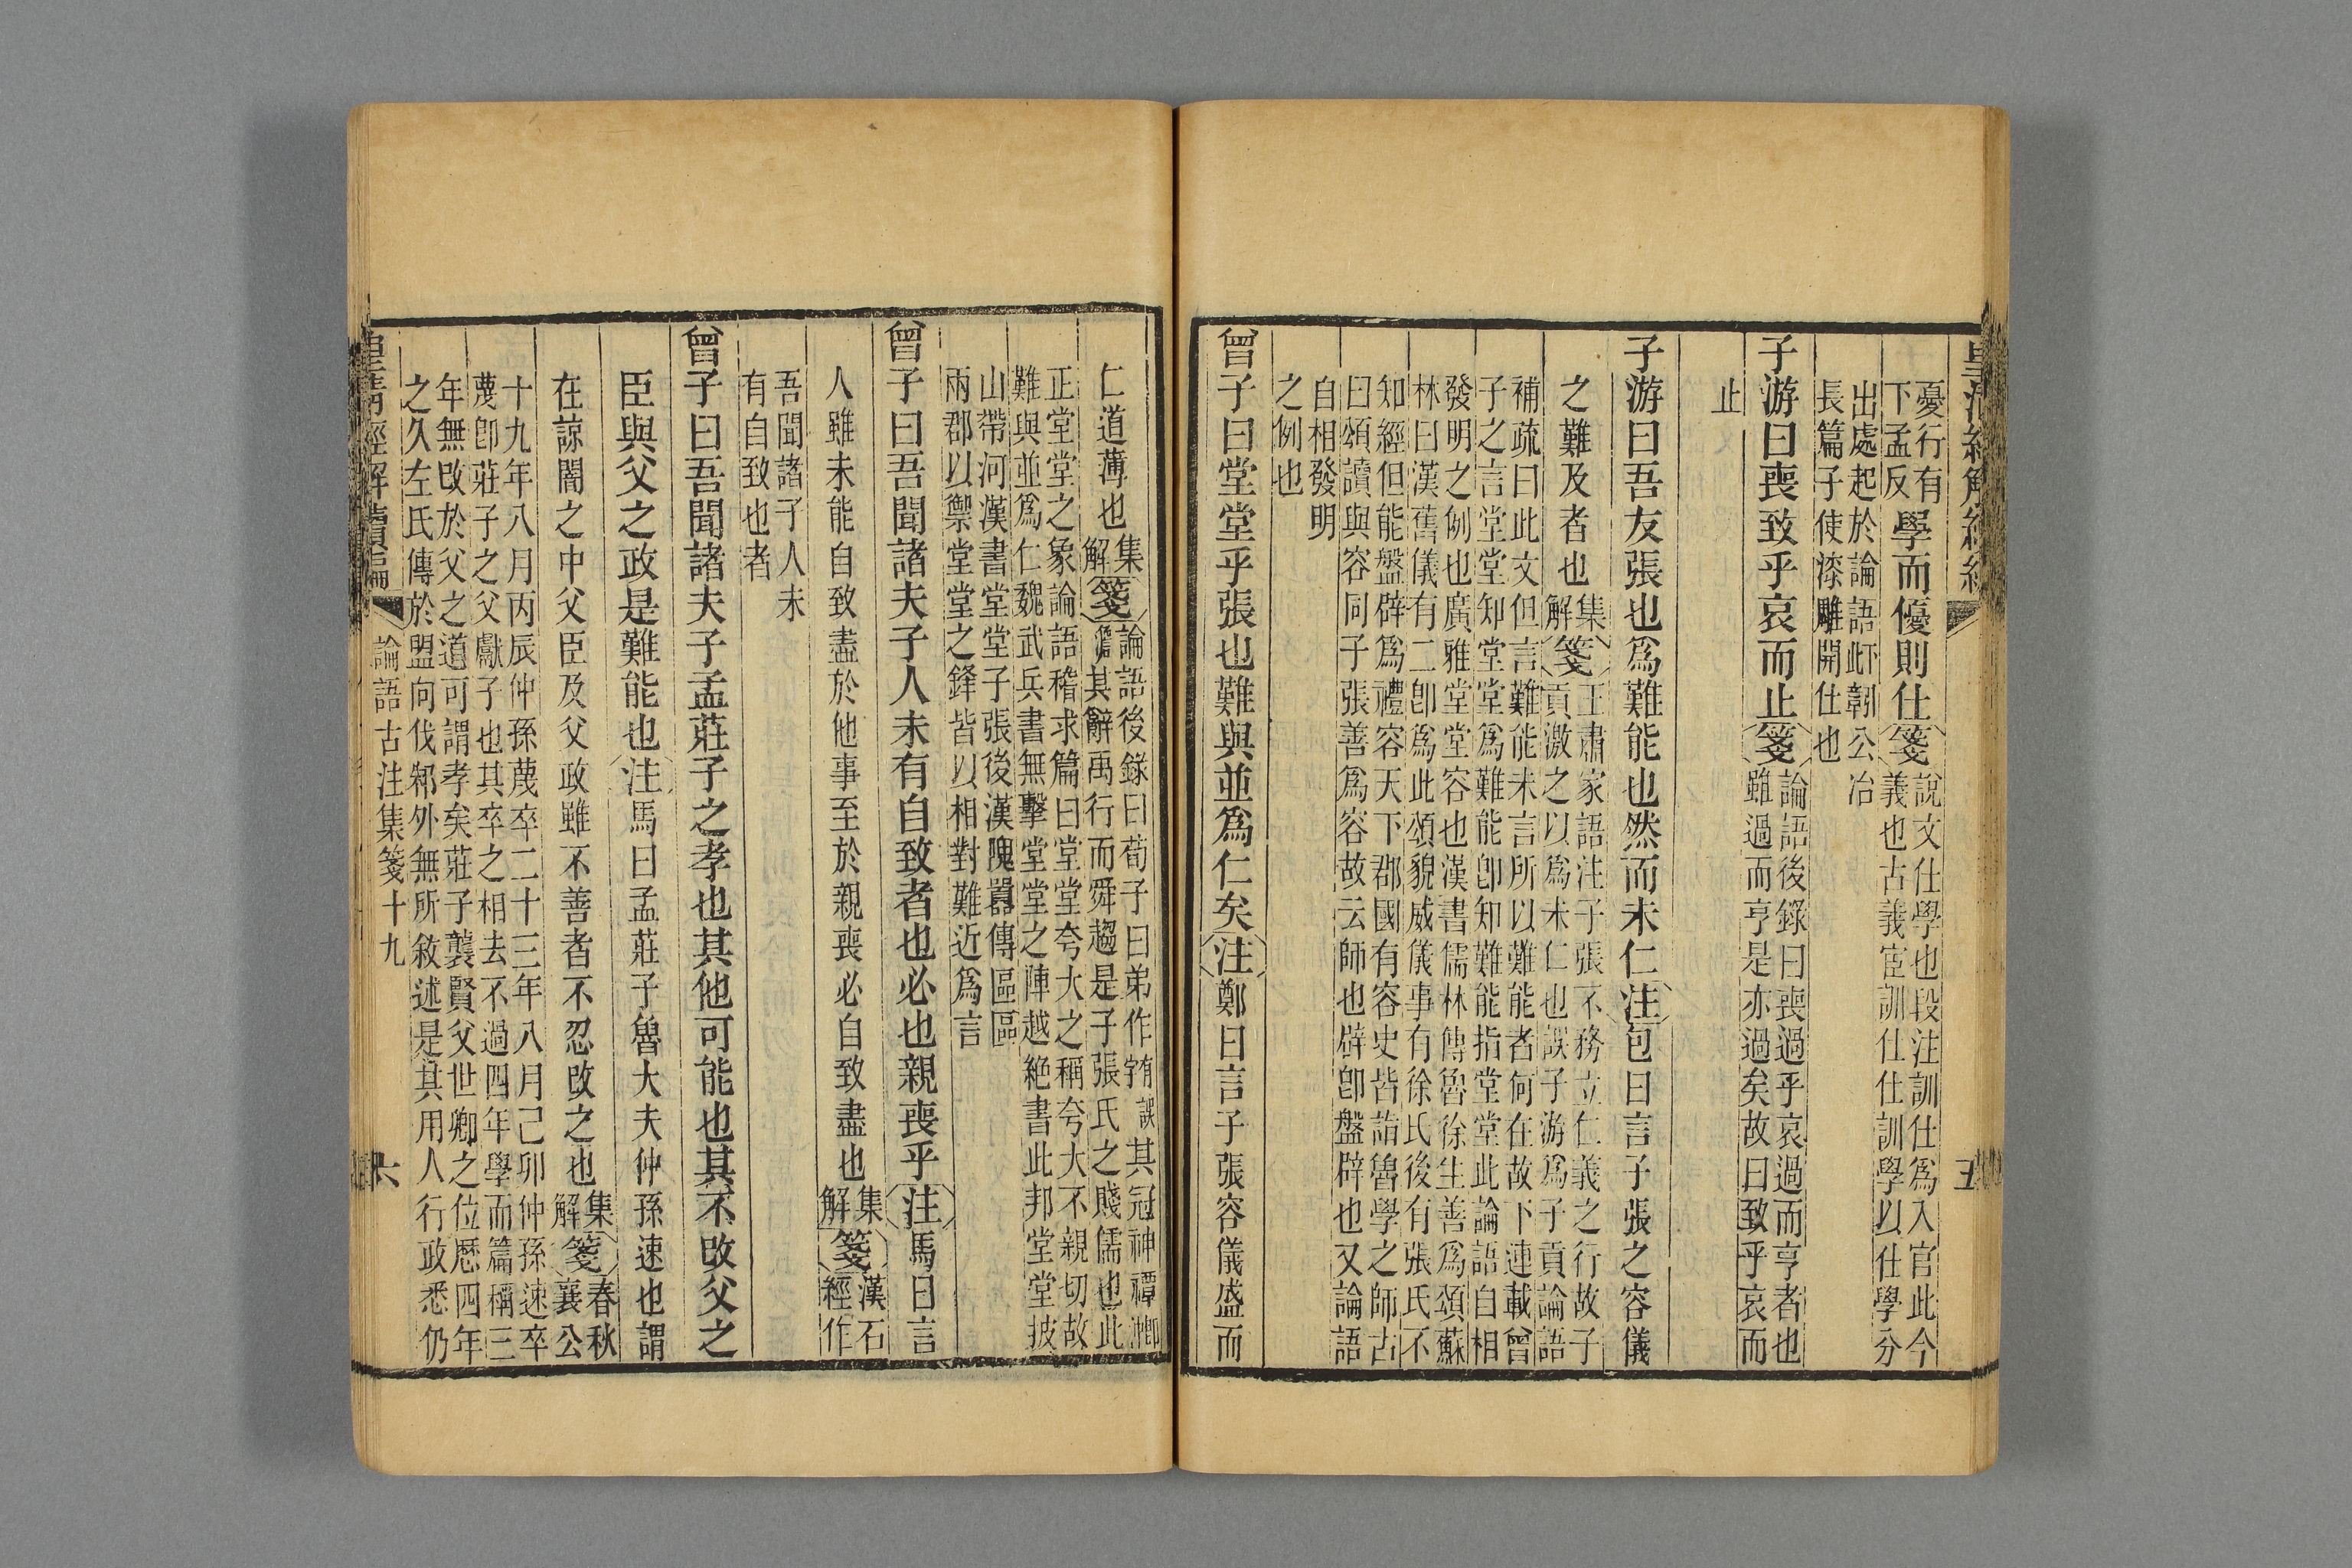 憂行有
下孟反
學而優則仕箋
說文仕學也段注訓仕爲入官此今
義也古義宦訓仕仕訓學以仕學分
出處起於論語公冶
長篇子使漆雕開仕也
子游曰喪致乎哀而止箋
論語後錄曰喪過乎哀過而亨者也
雖過而亨是亦過矣故曰致乎哀而
止
子游曰吾友張也爲難能也然而未仁注包曰言子張之容儀
之難及者也集
解箋
王肅家語注子張不務立仁義之行故子
貢激之以爲未仁也誤子游爲子貢論語
補疏曰此文但言難能未言所以難能者何在故下連載曾
子之言堂堂知堂堂爲難能卽知難能指堂堂此論語自相
發明之例也廣雅堂堂容也漢書儒林傳魯徐生善爲頌蘇
林曰漢舊儀有二卽爲此頌貌威儀事有徐氏後有張氏不
知經但能盤辟爲禮容天下郡國有容史皆詣魯學之師古
曰頌讀與容同子張善爲容故云師也辟卽盤辟也又論語
自相發明
之例也
曾子曰堂堂乎張也難與並爲仁矣注鄭曰言子張容儀盛而
五
仁道薄也集
解箋
論語後錄曰荀子曰弟作其冠神禫
其辭禹行而舜趨是子張氏之賤儒也此
正堂堂之象論語稽求篇曰堂堂夸大之稱夸大不親切故
難與並爲仁魏武兵書無擊堂堂之陣越絶書此邦堂堂披
山帶河漢書堂堂子張後漢隗囂傳區區
兩郡以禦堂堂之鋒皆以相對難近爲言
曾子曰吾聞諸夫子人未有自致者也必也親喪乎注馬曰言
人雖未能自致盡於他事至於親喪必自致盡也集
解箋
漢石
經作
吾聞諸子人未
有自致也者
曾子曰吾聞諸夫子孟莊子之孝也其他可能也其不改父之
臣與父之政是難能也注馬曰孟莊子魯大夫仲孫速也謂
在諒闇之中父臣及父政雖不善者不忍改之也集
解箋
春秋
襄公
十九年八月丙辰仲孫蔑卒二十三年八月己卯仲孫速卒
蔑卽莊子之父獻子也其卒之相去不過四年學而篇稱三
年無改於父之道可謂孝矣莊子襲賢父世卿之位歷四年
之久左氏傳於盟向伐邾外無所敘述是其用人行政悉仍
皇淸經解續編
論語古注集箋十九
六